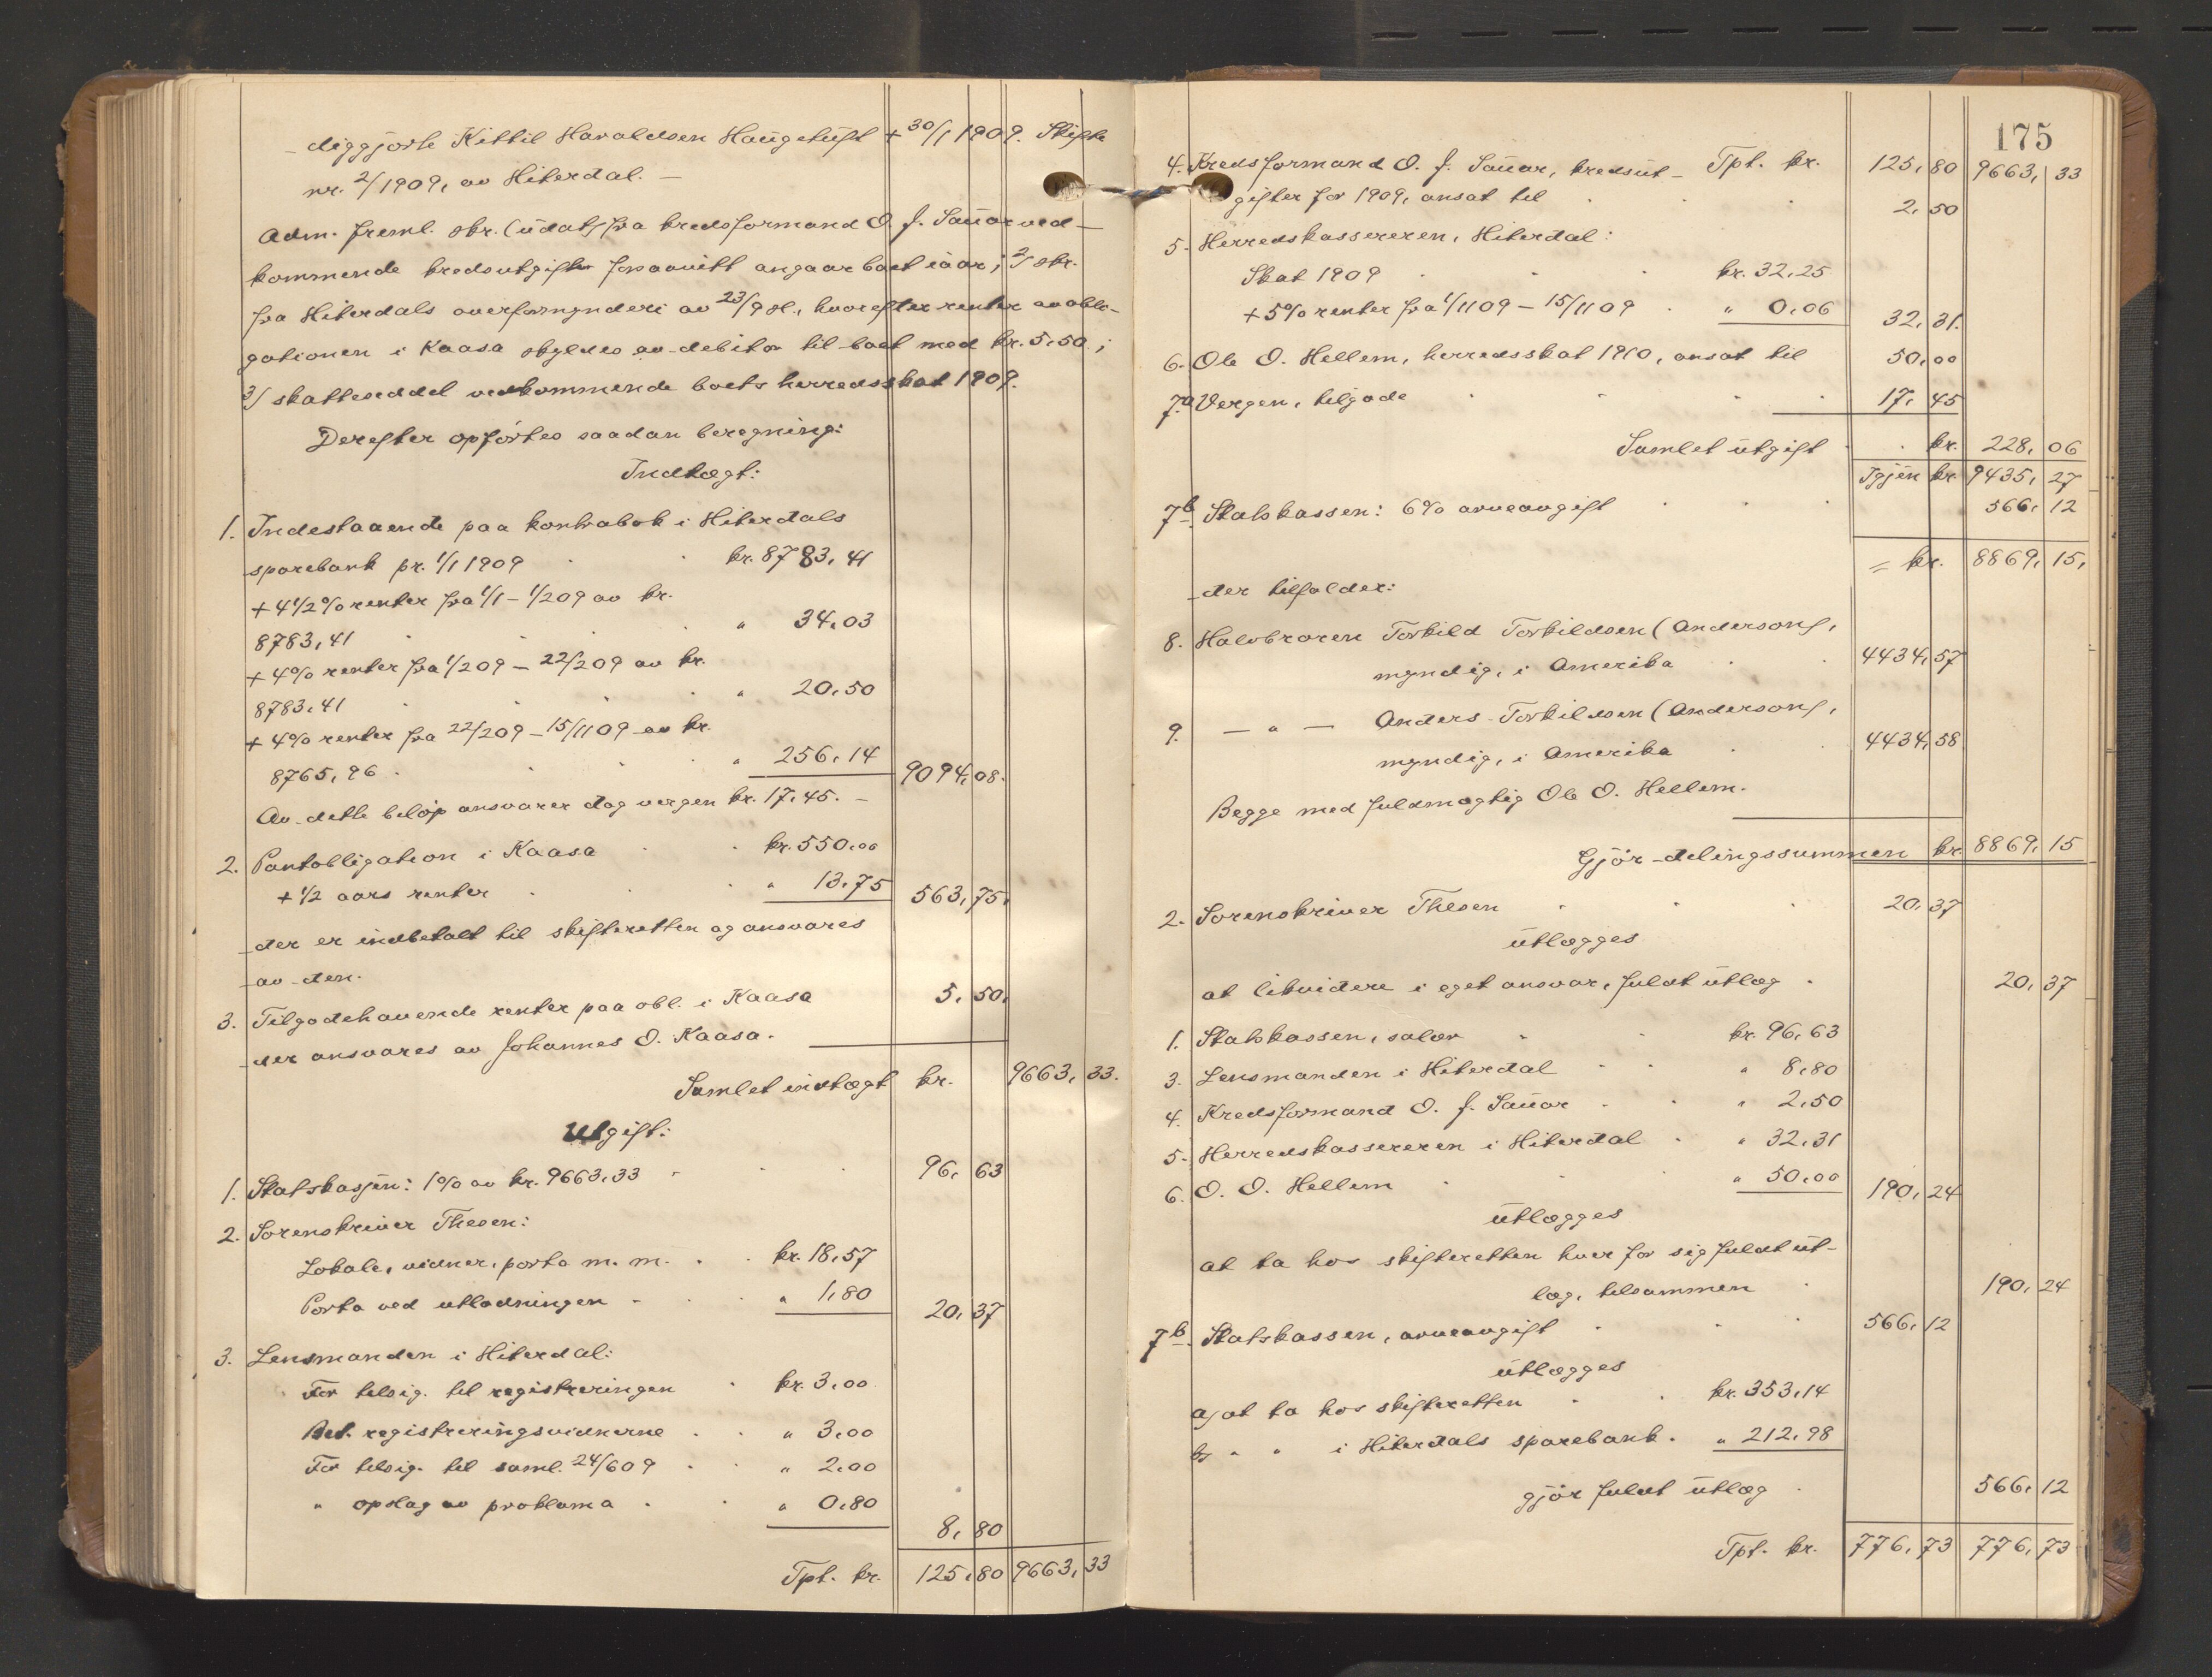 diggjorte Kittil Haraldsen Haugetuft + 30/1 1909. Skifte
nr. 2/1909, av Hiterdal. —
Adm. freml. skr. (udat.) fra kredsformand O. J. Sauar ved-
kommende kredsutgifter forsaavitt angaar boet iaar; 2) skr.
fra Hiterdals overformynderi av 23/9 sl., hvorefter renter av obli-
gationen i Kaasa skyldes av debitor til boet med kr. 5,50;
3) skatteseddel vedkommende boets herredsskat 1909.
Derefter opførtes saadan beregning:
Indtægt:
1. Indestaaende paa kontrabok i Hiterdals
sparebank pr. 1/1 1909 . . kr. 8783,41
+ 4 1/2 % renter fra 1/1 - 1/2 09 av kr.
8783,41 . . . " 34,03
+ 4% renter fra 1/2 09 - 22/2 09 av kr.
8783,41 . . . " 20,50
+ 4% renter fra 22/2 09 - 15/11 09 av kr.
8765,96 . . . " 256,14 9094,08.
Av dette beløp ansvarer dog vergen kr. 17,45. —
2. Pantobligation i Kaasa . . kr. 550,00
+ 1/2 aars renter . . . " 13,75 563,75.
der er indbetalt til skifteretten og ansvares
av den.
3. Tilgodehavende renter paa obl. i Kaasa 5,50.
der ansvares av Johannes O. Kaasa.
Samlet indtægt kr. 9663,33.
Utgift:
1. Statskassen: 1% av kr. 9663,33 . . . 96,63
2. Sorenskriver Thesen:
Lokale, vidner, porto m. m. . . kr. 18,57
Porto ved utlodningen . . . " 1,80 20,37
3. Lensmanden i Hiterdal:
For tilsig. til registreringen . kr. 3,00
Bet. registreringsvidnerne . . " 3,00
For tilsig. til saml. 24/6 09 . . " 2,00
" opslag av proklama . . " 0,80
8,80
Tpt. kr. 125,80 9663,33
175
Tpt. kr. 125,80 9663,33
4. Kredsformand O. J. Sauar, kredsut-
gifter for 1909, ansat til . . 2,50
5. Herredskassereren, Hiterdal:
Skat 1909 . . . kr. 32,25
+ 5% renter fra 1/11 09 - 15/11 09 . " 0,06 32,31.
6. Ole O. Hellem, herredsskat 1910, ansat til 50,00
7a Vergen, tilgode . . . . 17,45
Samlet utgift . . kr. 228,06
Igjen kr. 9435,27
7b Statskassen: 6% arveavgift . . . 566,12
= kr. 8869,15,
der tilfalder:
8. Halvbroren Torkild Torkildsen (Anderson),
myndig, i Amerika . . 4434,57
9. — " — Anders Torkildsen (Anderson),
myndig, i Amerika . . 4434,58
Begge med fuldmægtig Ole O. Hellem.
Gjør delingssummen kr. 8869,15
2. Sorenskriver Thesen . . . 20,37
utlægges
at likvidere i eget ansvar, fuldt utlæg . 20,37
1. Statskassen, salær . . kr. 96,63
3. Lensmanden i Hiterdal . . " 8,80
4. Kredsformand O. J. Sauar . . " 2,50
5. Herredskassereren i Hiterdal . " 32,31
6. O. O. Hellem . . " 50,00 190,24
utlægges
at ta hos skifteretten hver for sig fuldt ut-
læg, tilsammen . 190,24
7b. Statskassen, arveavgift . . . 566,12
utlægges
a) at ta hos skifteretten . . kr. 353,14
b) " " i Hiterdals sparebank . " 212,98
gjør fuldt utlæg . 566,12
Tpt. kr. 776,73 776,73